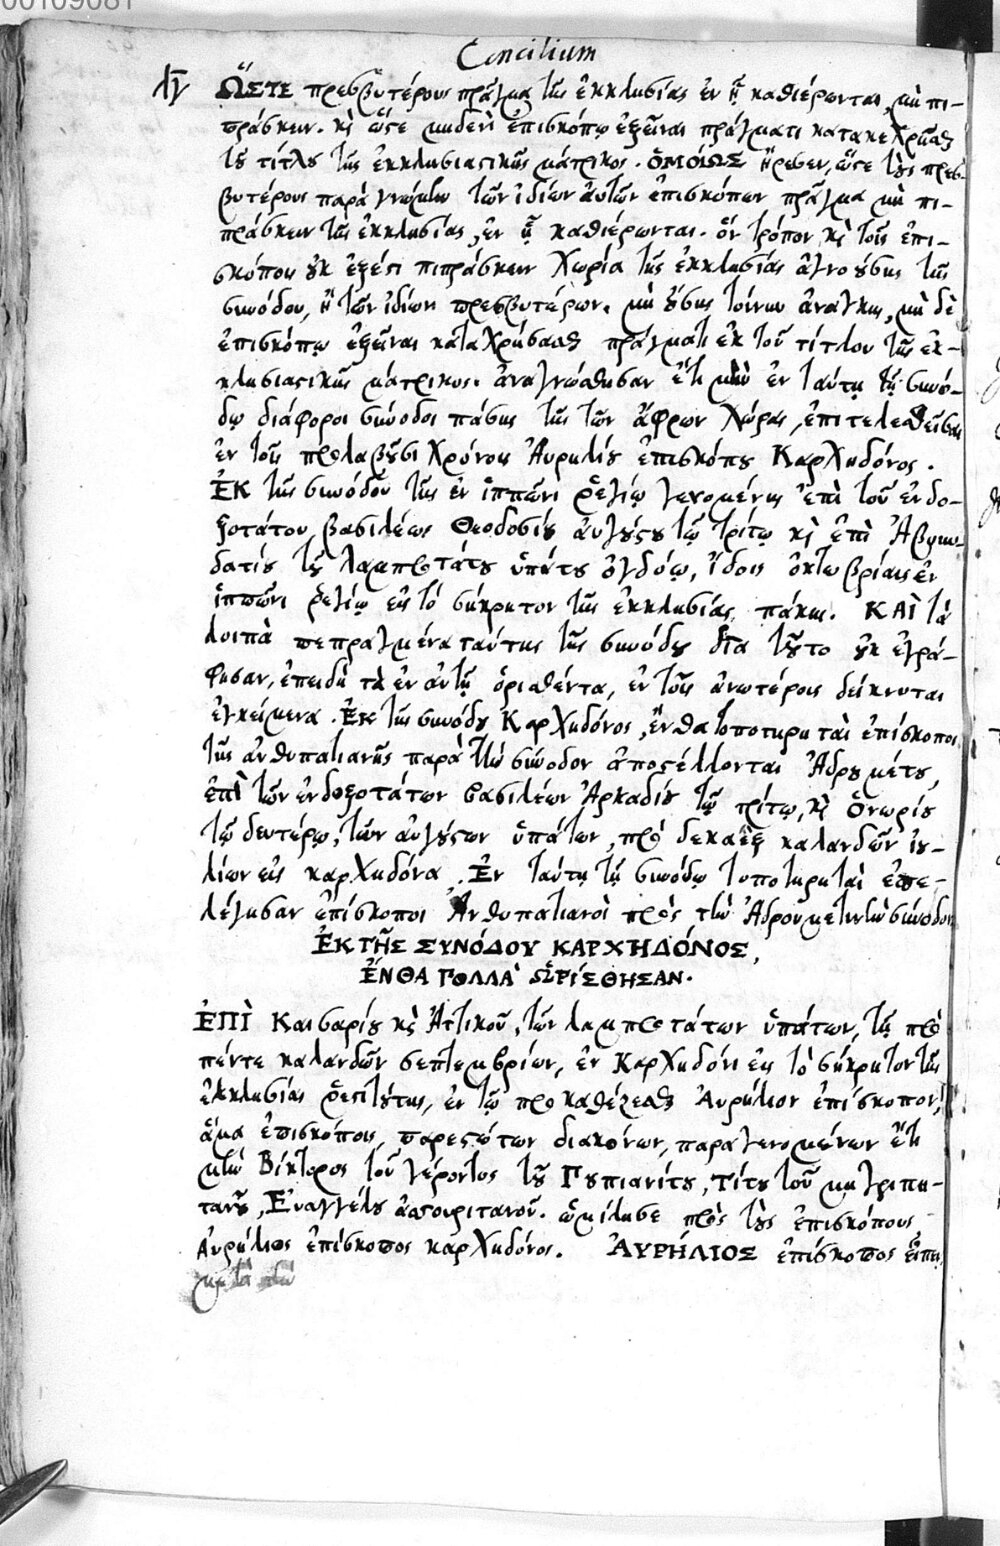 00109081
Concilium
λγ ὭΣΤΕ πρεσβυτέρους πρᾶγμα τῆς ἐκκλησίας ἐν ᾗ καθιέρωνται, μὴ πι-
πράσκειν. κὶ ὥστε μηδενὶ ἐπισκόπῳ ἐξεῖναι πράγματι κατακεχρῆσθαι
τοῦ τίτλου τῆς ἐκκλησιαστικῆς μάτρικος. ὉΜΟΊΩΣ ἤρεσεν, ὥστε τοὺς πρεσ-
βυτέρους παρὰ γνώμην τῶν ἰδίων αὐτῶν ἐπισκόπων πρᾶγμα μὴ πι-
πράσκειν τῆς ἐκκλησίας, ἐν ᾗ καθιέρωνται. ὃν τρόπον κὶ τοῖς ἐπι-
σκόποις οὐκ ἔξεστι πιπράσκειν χωρία τῆς ἐκκλησίας ἀγνοούσης τῆς
συνόδου, ἢ τῶν ἰδίων πρεσβυτέρων. μὴ οὔσης τοίνυν ἀνάγκης, μὴ δὲ
ἐπισκόπῳ ἐξεῖναι καταχρήσασθαι πράγματι ἐκ τοῦ τίτλου τῆς ἐκ-
κλησιαστικῆς μάτρικος. ἀνεγνώσθησαν ἔτι μὴν ἐν ταύτῃ τῇ συνό-
δῳ διάφοροι σύνοδοι πάσης τῆς τῶν ἄφρων χώρας, ἐπιτελεσθεῖσαι
ἐν τοῖς προλαβοῦσι χρόνοις Αὐρηλίου ἐπισκόπου Καρχηδόνος.
ἘΚ τῆς συνόδου τῆς ἐν ἱππῶνι ῥεγίῳ γενομένης ἐπὶ τοῦ ἐνδο-
ξοτάτου βασιλέως Θεοδοσίου αὐγούστου τῷ τρίτῳ κὶ ἐπὶ Ἀβουν-
δατίου τοῦ λαμπροτάτου ὑπάτου ὀγδόῳ, ἴδοις ὀκτωβρίαις ἐν
ἱππῶνι ῥεγίῳ εἰς τὸ σήκρητον τῆς ἐκκλησίας πάκης. ΚΑῚ τὰ
λοιπὰ πεπραγμένα ταύτης τῆς συνόδου διὰ τοῦτο οὐκ ἐγρά-
φησαν, ἐπειδὴ τὰ ἐν αὐτῇ ὁρισθέντα, ἐν τοῖς ἀνωτέροις δείκνυται
ἐγκείμενα. Ἐκ τῆς συνόδου Καρχηδόνος, ἔνθα τοποτηρηταὶ ἐπίσκοποι
τῆς ἀνθυπατιανῆς παρὰ τὴν σύνοδον ἀποστέλλονται Ἀδρουμέτου,
ἐπὶ τῶν ἐνδοξοτάτων βασιλέων Ἀρκαδίου τῷ τρίτῳ, κὶ Ὁνωρίου
τῷ δευτέρῳ, τῶν αὐγούστων ὑπάτων, πρὸ δεκαὲξ καλανδῶν ἰου-
λίων εἰς καρχηδόνα. Ἐν ταύτῃ τῇ συνόδῳ τοποτηρηταὶ ἐπε-
λέγησαν ἐπίσκοποι Ἀνθυπατιανοὶ πρὸς τὴν Ἀδρουμετινὴν σύνοδον
ἘΚ ΤΗ͂Σ ΣΥΝΌΔΟΥ ΚΑΡΧΗΔΌΝΟΣ,
ἜΝΘΑ ΠΟΛΛᾺ ὩΡΊΣΘΗΣΑΝ.
ἘΠῚ Καισαρίου κὶ Ἀττικοῦ, τῶν λαμπροτάτων ὑπάτων, τῇ πρὸ
πέντε καλανδῶν σεπτεμβρίων, ἐν Καρχηδόνι εἰς τὸ σήκρητον τῆς
ἐκκλησίας ῥεστιτούτης, ἐν τῷ προκαθέζεσθαι Αὐρήλιον ἐπίσκοπον,
ἅμα ἐπισκόποις, παρεστώτων διακόνων, παραγενομένων ἔτι
μὴν Βίκτορος τοῦ γέροντος τοῦ Γουπιανίτου, Τίτου τοῦ μηγριπη-
τανοῦ, Εὐαγγέλου ἀσσουριτανοῦ. ὡμίλησε πρὸς τοὺς ἐπισκόπους
Αὐρήλιος ἐπίσκοπος καρχηδόνος. ΑΥ̓ΡΉΛΙΟΣ ἐπίσκοπος εἶπε,
μετὰ τὴν